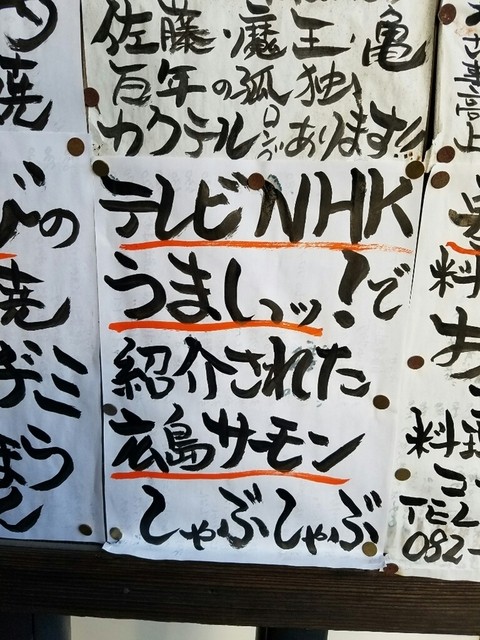 佐藤・魔王・亀
百年の孤独
カクテルロングあります!!
テレビNHK
うましッ!で
紹介された
広島サモン
しゃぶしゃぶ
焼
の
焼
料
お
料理
コ
TEL
082-